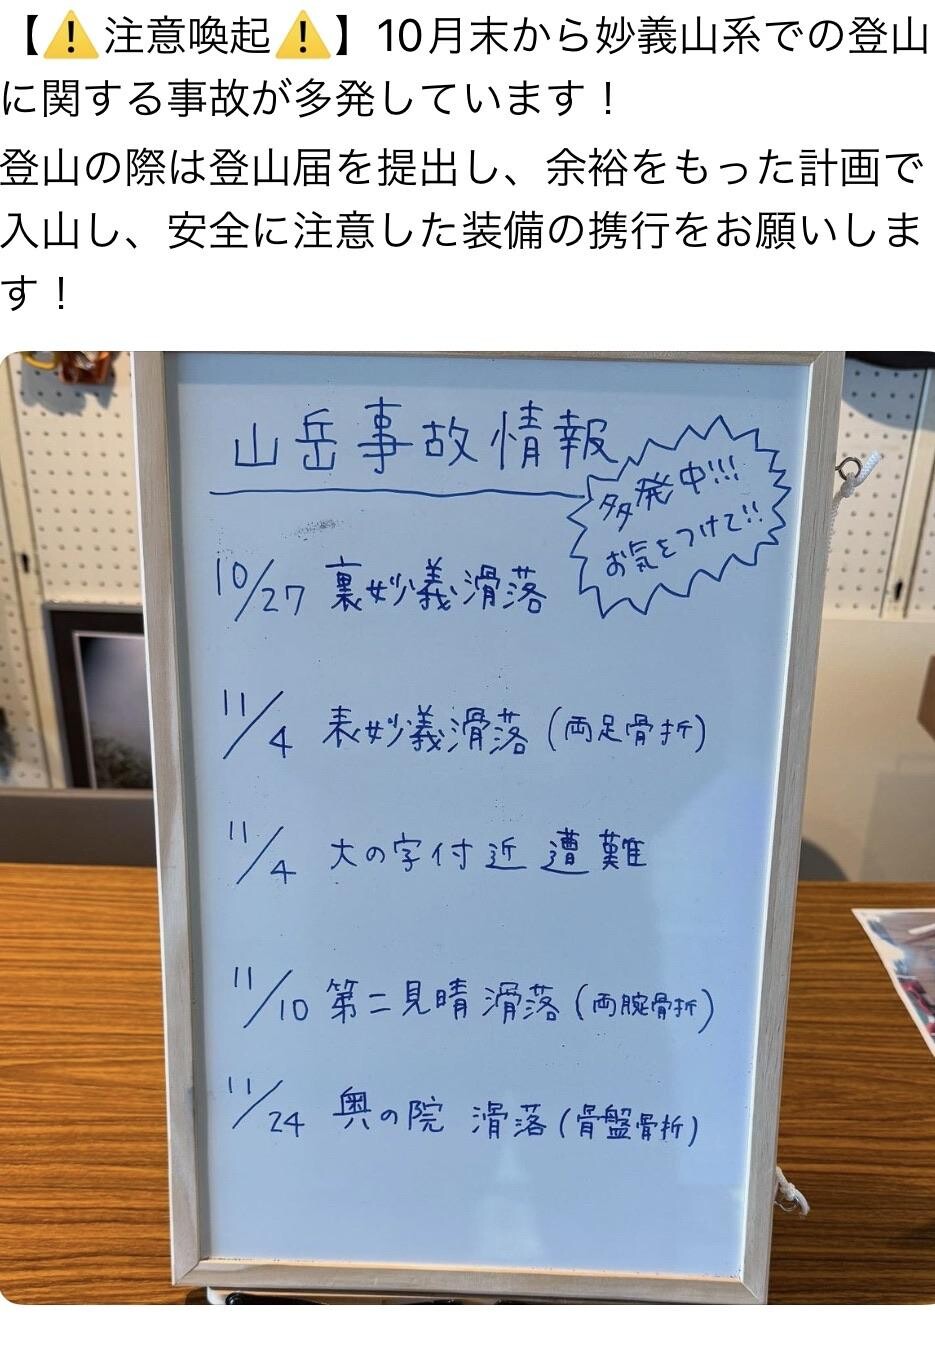 【⚠️注意喚起⚠️】10月末から妙義山系での登山
に関する事故が多発しています！
登山の際は登山届を提出し、余裕をもった計画で
入山し、安全に注意した装備の携行をお願いしま
す！
山岳事故情報
多発中!!!
お気をつけて!!
10/27 裏妙義滑落
11/4 表妙義滑落(両足骨折)
11/4 大の字付近 遭難
11/10 第二見晴 滑落(両腕骨折)
11/24 奥の院 滑落(骨盤骨折)